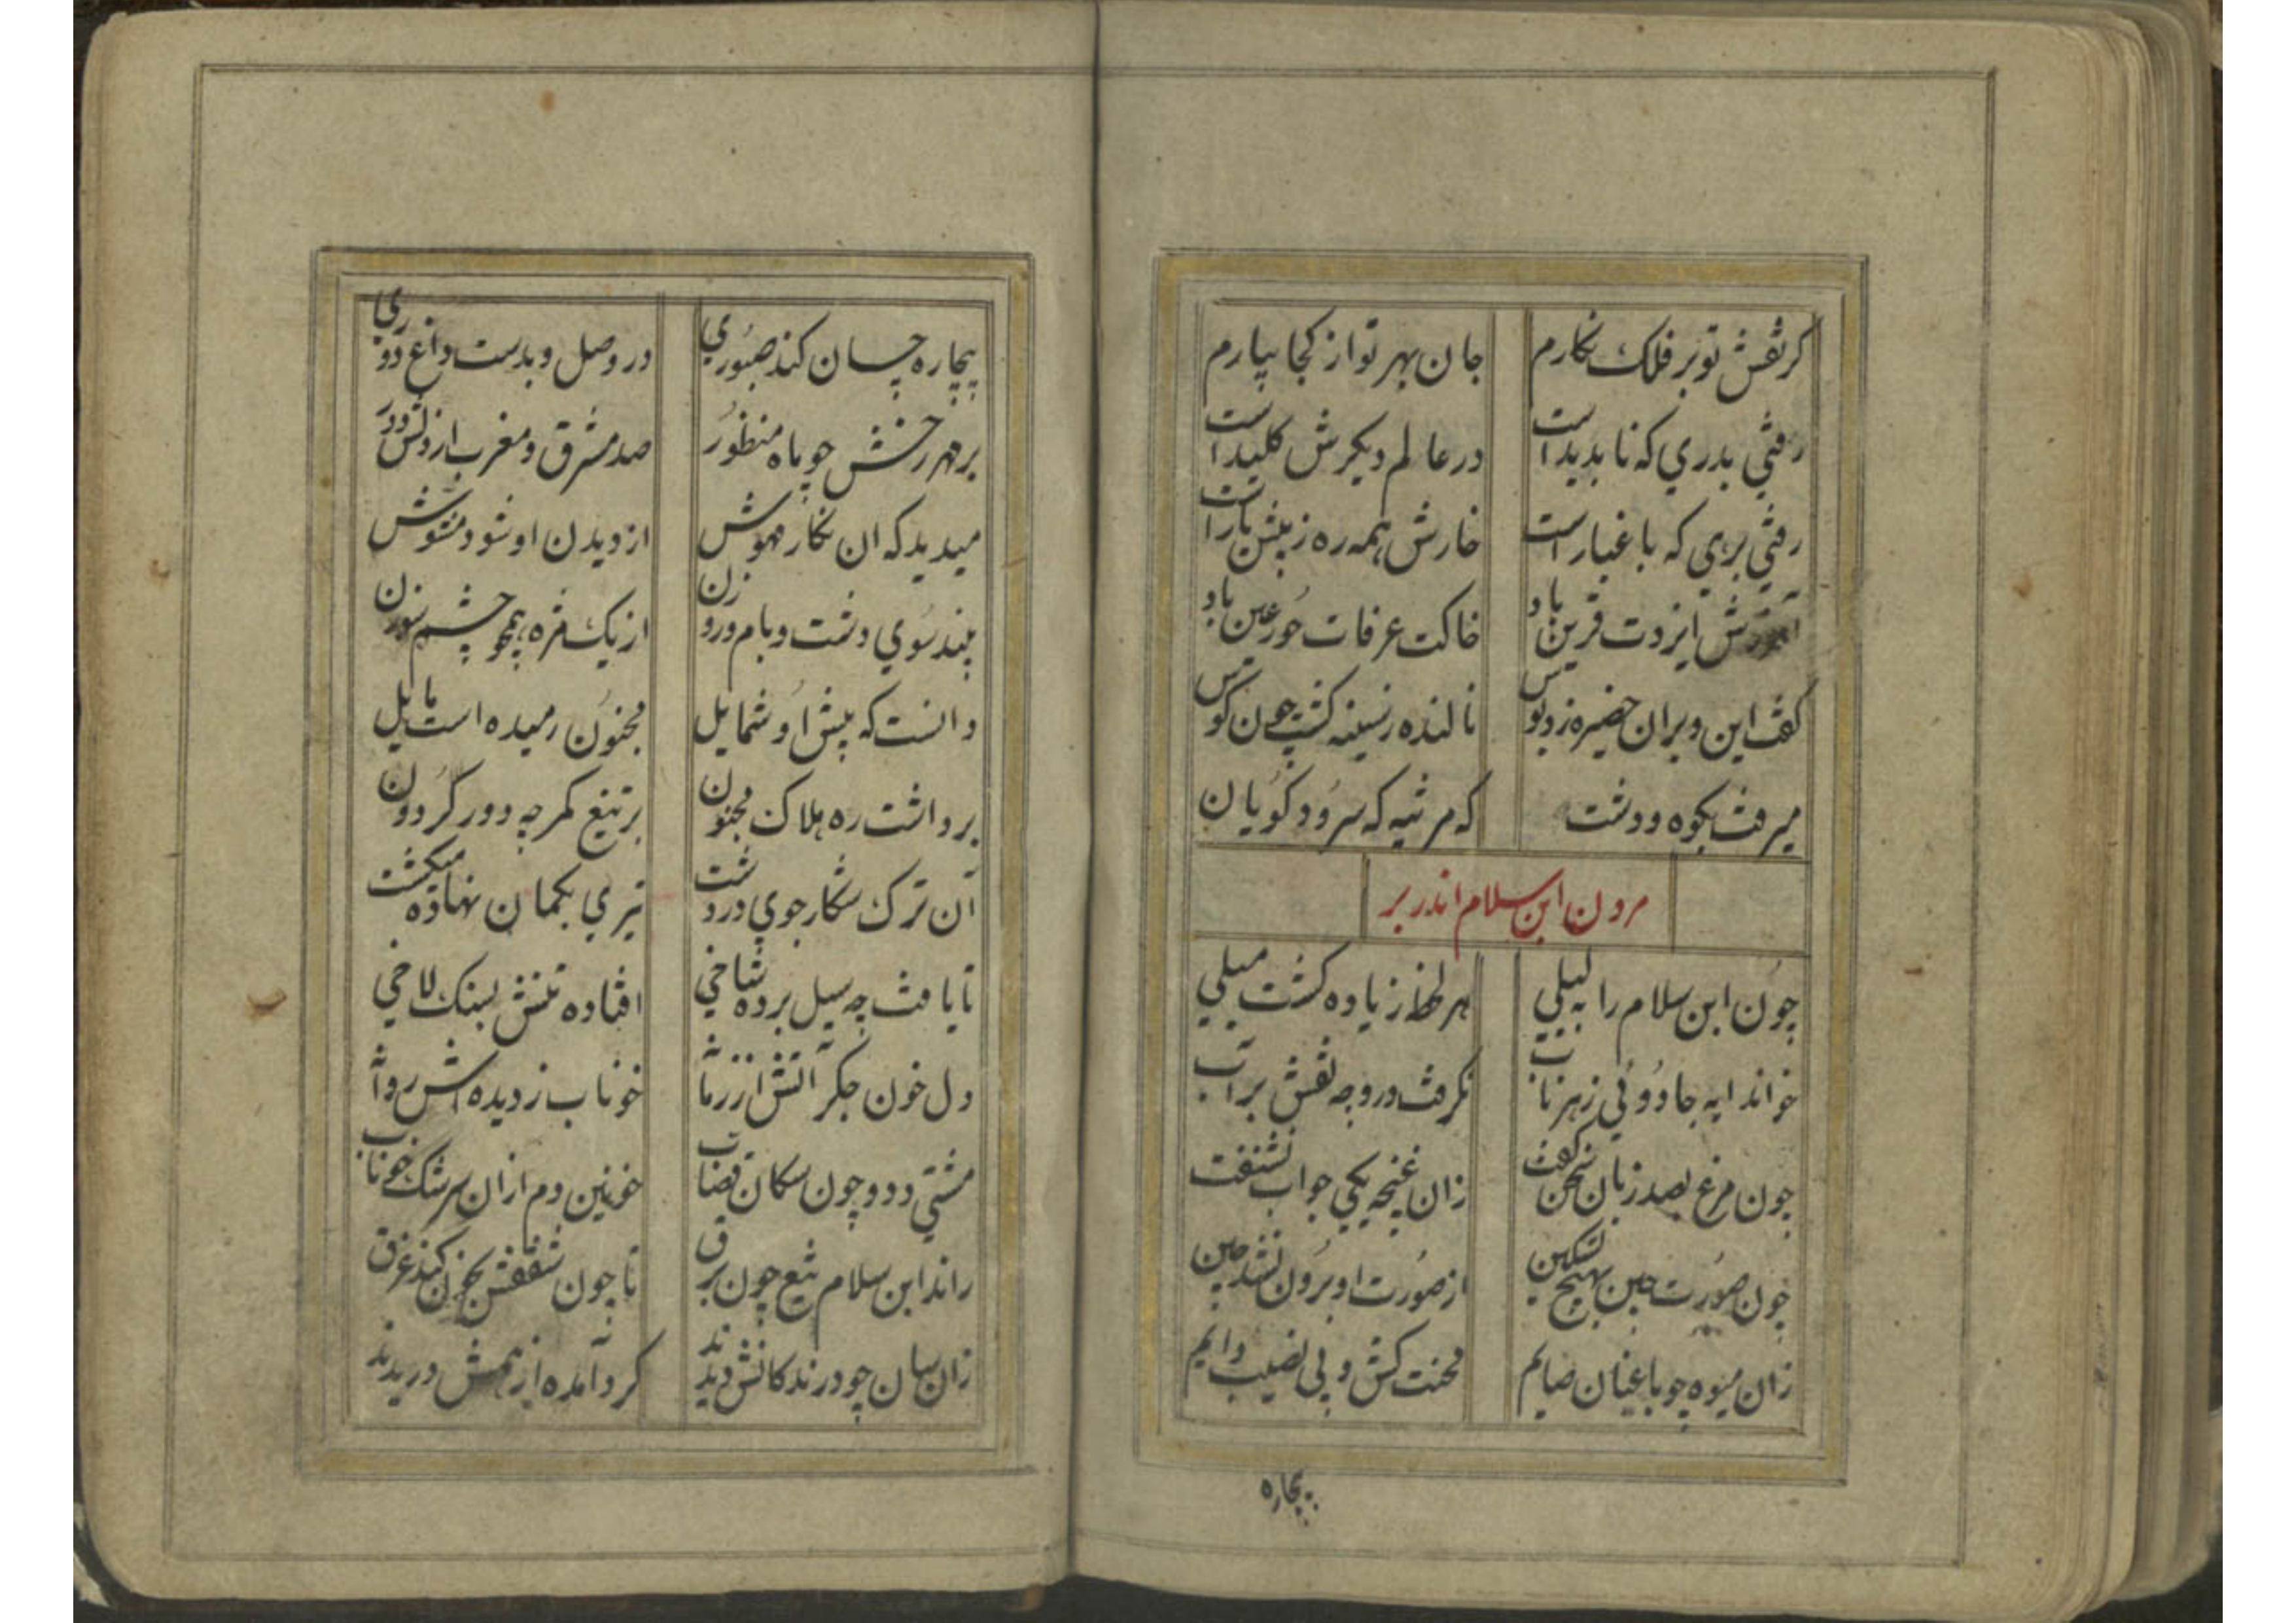 کر نقش تو بر فلک نکارم جان بهر تو از کجا بیارم
رفتی بدری که نابدید است در عالم دیکرش کلید است
رفتی بری که با غبار است خارش همه ره ز پیش یار است
ایزدت قرین باد خاکت عرفات حور عین باد
کفت این و بران حضیره زد بوس نالنده ز سینه کشت چون کوس
میرفت بکوه و دشت که مرثیه که سرود کویان
مردن ابن سلام اندر بر
چون ابن سلام را به لیلی هر لحظه زیاده کشت میلی
خواند ایه جادوئی ز هر باب نکرفت درو چه نقش بر آب
چون مرغ بصد زبان سخن کفت زان غنچه یکی جواب نشنفت
چون صورت چین بهیچ تسکین از صورت او برون نشد چین
زان میوه چو باغبان صایم محنت کش و بی نصیب دایم
بیچاره
بیچاره چسان کند صبوری در وصل و بدست داغ دوری
بر مهر رخش چو ماه منظور صد مشرق و مغرب از دلش دور
میدید که ان نکار مهوش از دیدن او شود مشوش
بیند سوی دشت و بام و روزن از یک مژه همچو چشم سوزن
دانست که پیش او شمایل مجنون رمیده است مایل
برداشت ره هلاک مجنون بر تیغ کمر چه دور کردون
آن ترک شکار جوی در دشت تیری بکمان نهاده میکشت
تا یافت چه سیل برده شاخی افتاده تنش بسنک لاخی
دل خون جکر آتش از خوناب ز دیده اش
مشتی دد و چون سکان قصاب خونین دم ازان سرشک خوناب
راند ابن سلام تیغ چون برق تا چون شفقش بخون کند غرق
زان سان چو درندکانش دیدند کرد آمده از همش دریدند